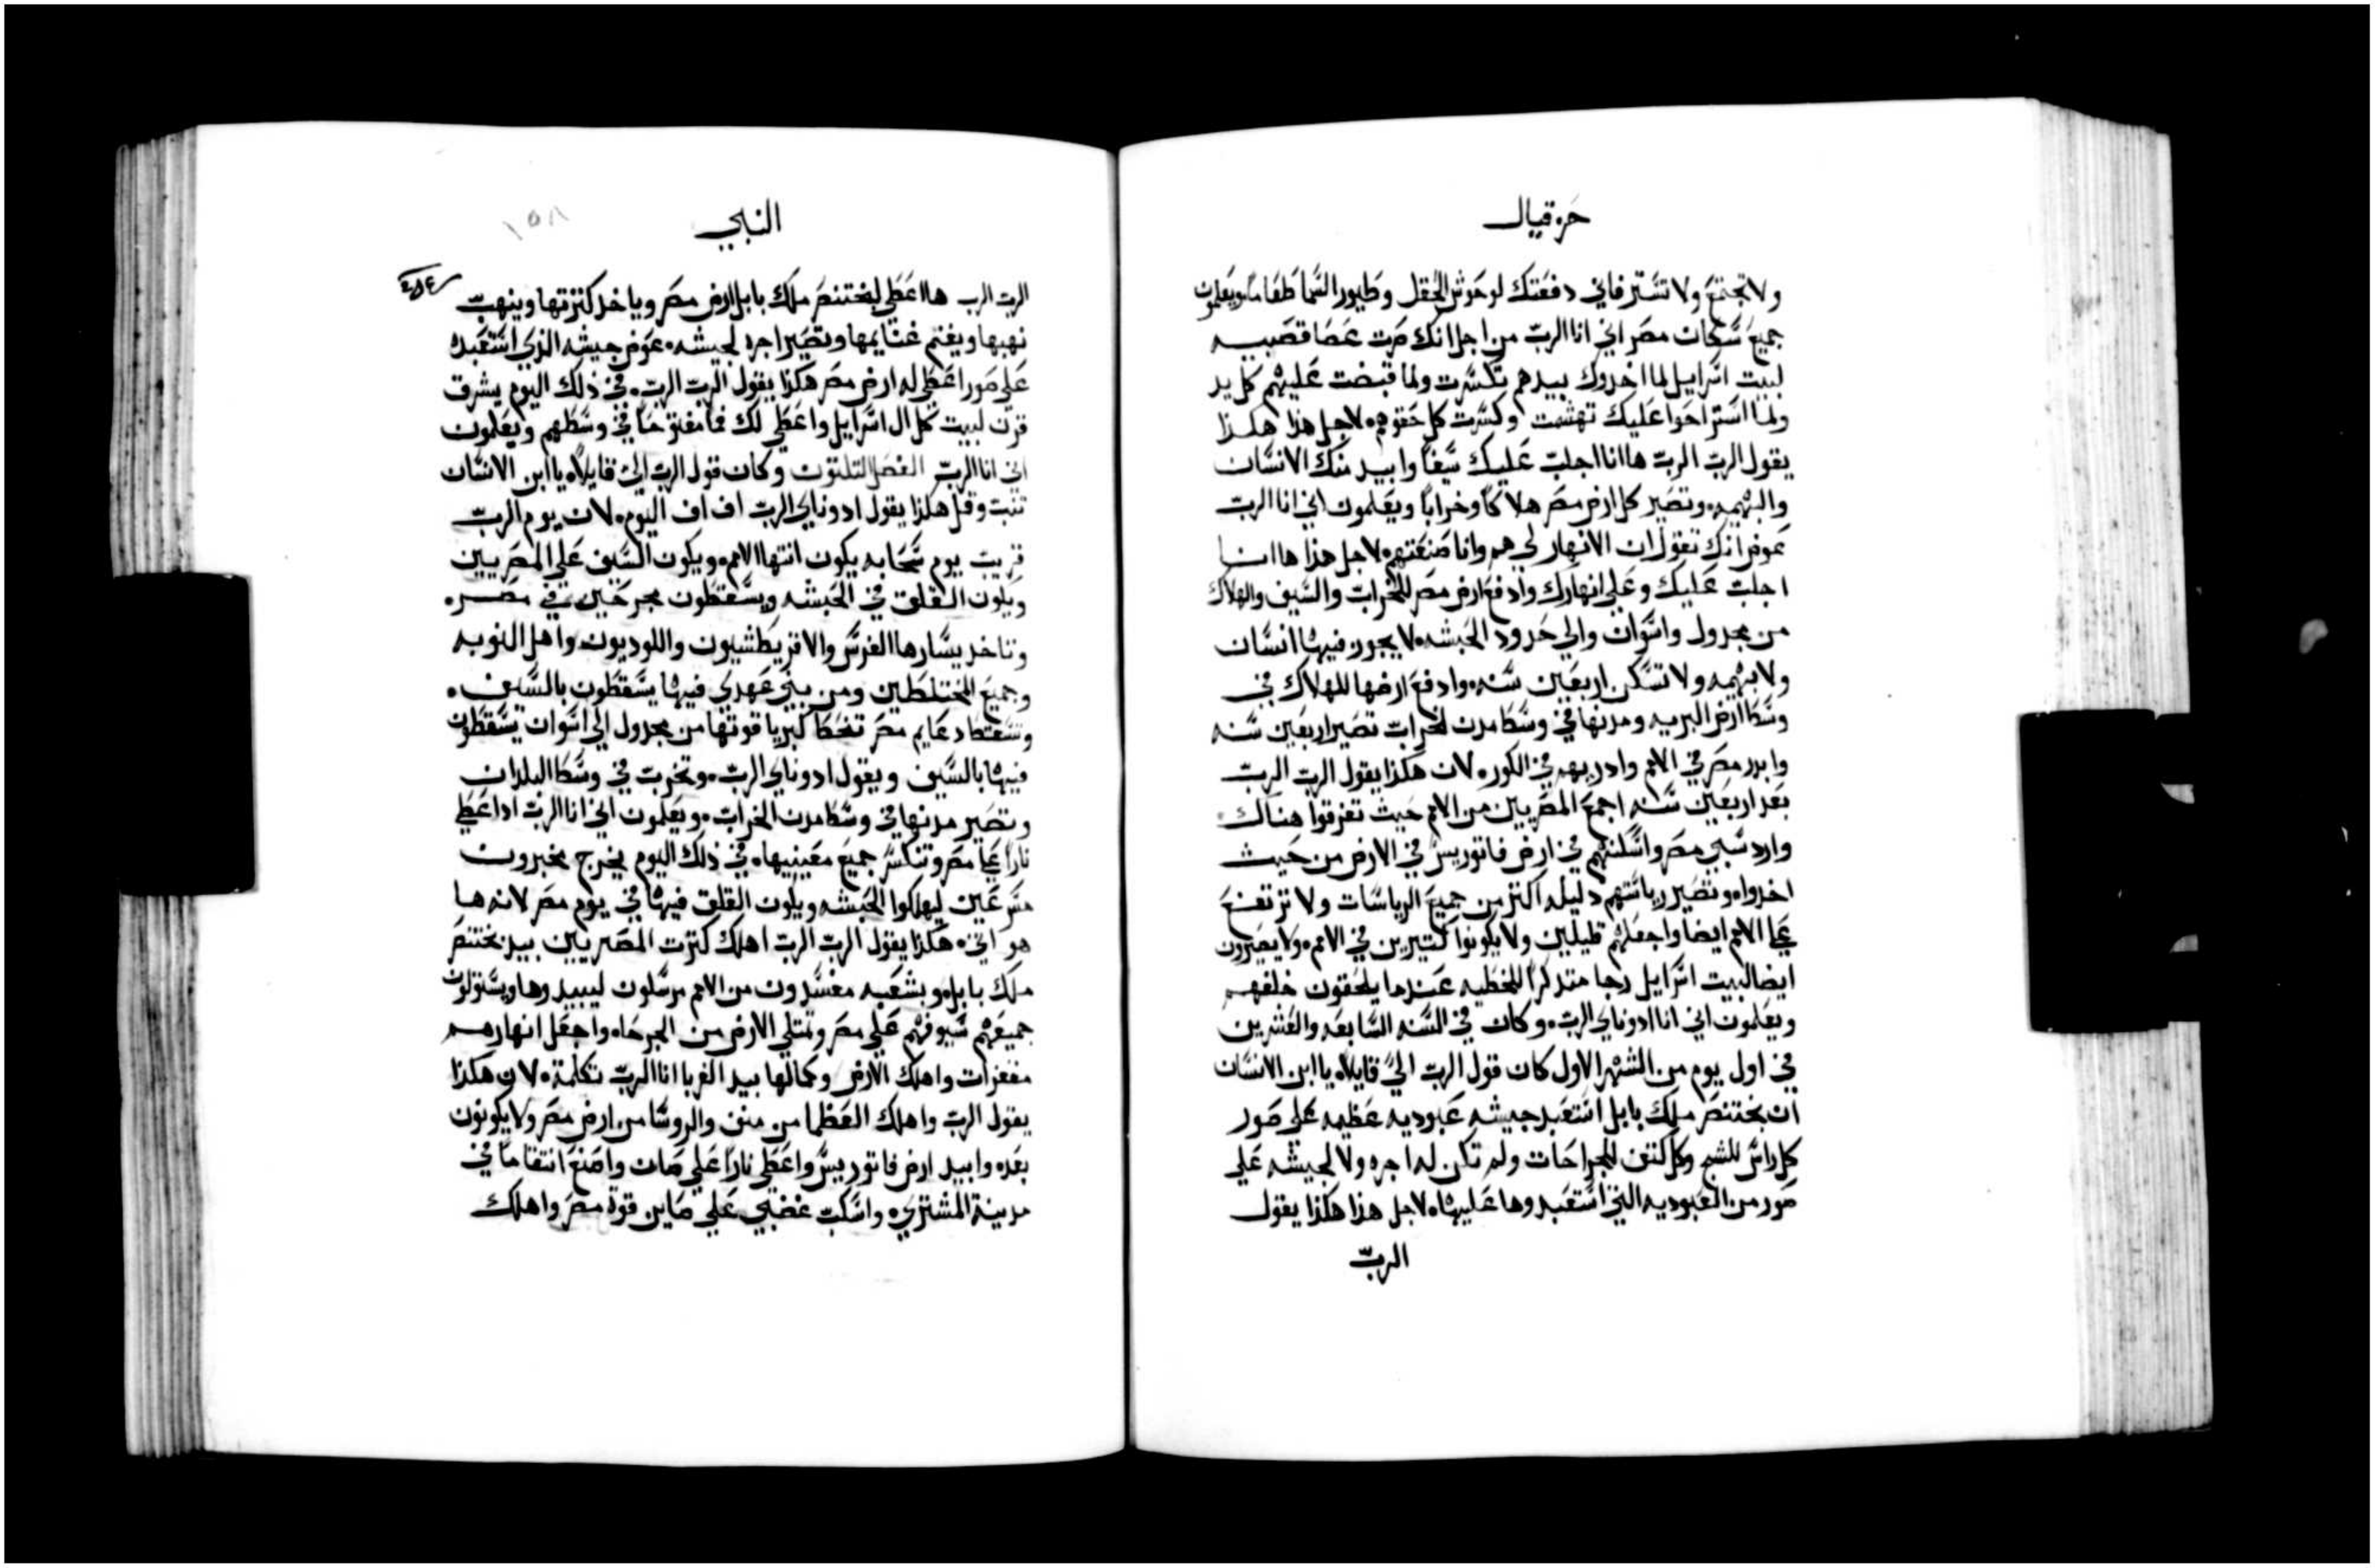 حزقيال
ولا تجتمع ولا تستر فاني دفعتك لوحوش الحقل وطيور السما طعاما ويعلمون
جميع سكان مصر اني انا الرب من اجل انك صرت عصا قصبيه
لبيت اسرايل لما اخدوك بيدهم تكسرت ولما قبضت عليهم كل يد
ولما استراحوا عليك تهشمت وكسرت كل حقوهم لاجل هذا هكذا
يقول الرب الرب ها انا اجلب عليك سيفا وابيد منك الانسان
والبهيمه وتصير كل ارض مصر هلاكا وخرابا ويعلمون اني انا الرب
عوض انك تقول ان الانهار لي هم وانا صنعتهم لاجل هذا ها انا
اجلب عليك وعلي انهارك وادفع ارض مصر للخراب والسيف والهلاك
من مجدول واسوان والي حدود الحبشه لا يجوز فيها انسان
ولا بهيمه ولا تسكن اربعين سنه وادفع ارضها للهلاك في
وسط ارض البريه ومدنها في وسط مدن الخراب تصير اربعين سنه
وابدد مصر في الامم وادريهم في الكور لان هكذا يقول الرب الرب
بعد اربعين سنه اجمع المصريين من الامم حيث تفرقوا هناك
وارد سبي مصر واسكنهم في ارض فاتوريس في الارض من حيث
اخدوا وتصير رياستهم دليله اكتر من جميع الرياسات ولا ترتفع
علي الامم ايضا واجعلهم قليلين ولا يكونوا كتيرين في الامم ولا يصيرون
ايضا لبيت اسرايل رجا متدكرا للخطيه عندما يلحقون خلفهم
ويعلمون اني انا ادوناي الرب وكان في السنه السابعه والعشرين
في اول يوم من الشهر الاول كان قول الرب الي قايلا يا ابن الانسان
ان بختنصر ملك بابل استعبد جيشه عبوديه عظيمه علي صور
كل راس للشج وكل كتف للجراحات ولم تكن له اجره ولا لجيشه علي
صور من العبوديه التي استعبدوها عليها لاجل هذا هكذا يقول
الرب
النبي
١٥٨
الرب الرب ها اعطي لبختنصر ملك بابل ارض مصر وياخد كنزتها وينهب
نهبها ويغنم غنايمها وتصير اجره لجيشه عوض جيشه الذي استعبد
علي صور اعطي له ارض مصر هكذا يقول الرب الرب في ذلك اليوم يشرق
قرن لبيت كل ال اسرايل واعطي لك فما مفتوحا في وسطهم ويعلمون
اني انا الرب الفصل التلتون وكان قول الرب الي قايلا يا ابن الانسان
تنبت وقل هكذا يقول ادوناي الرب اف اف اليوم لان يوم الرب
قريب يوم سحابه يكون انتها الامم ويكون السيف علي المصريين
ويكون القلق في الحبشه ويسقطون مجرحين في مصر
وتاخد يسارها الفرس والاقريطشيون واللوديون واهل النوبه
وجميع المختلطين ومن بني عهدي فيها يسقطون بالسيف
وتسقط دعايم مصر تنحط كبريا قوتها من مجدول الي اسوان يسقطون
فيها بالسيف ويقول ادوناي الرب وتخرب في وسط البلدان
وتصير مدنها في وسط مدن الخراب ويعلمون اني انا الرب ادا اعطي
نارا علي مصر وتنكسر جميع معينيها في ذلك اليوم يخرج مخبرون
مسرعين ليهلكوا الحبشه ويكون القلق فيها في يوم مصر لانه ها
هو اتي هكذا يقول الرب الرب اهلك كترت المصريين بيد بختنصر
ملك بابل وبشعبه مفسدون من الامم مرسلون ليبيدوها ويستولون
جميعهم سيوفهم علي مصر وتمتلي الارض من الجرحا واجعل انهارهم
مقفرات واهلك الارض وكمالها بيد الغربا انا الرب تكلمت لان هكذا
يقول الرب واهلك العظما من منف والروسا من ارض مصر ولا يكونون
بعد وابيد ارض فاتوريس واعطي نارا علي صان واصنع انتقاما في
مدينة المشتري واسكب غضبي علي صاين قوة مصر واهلك